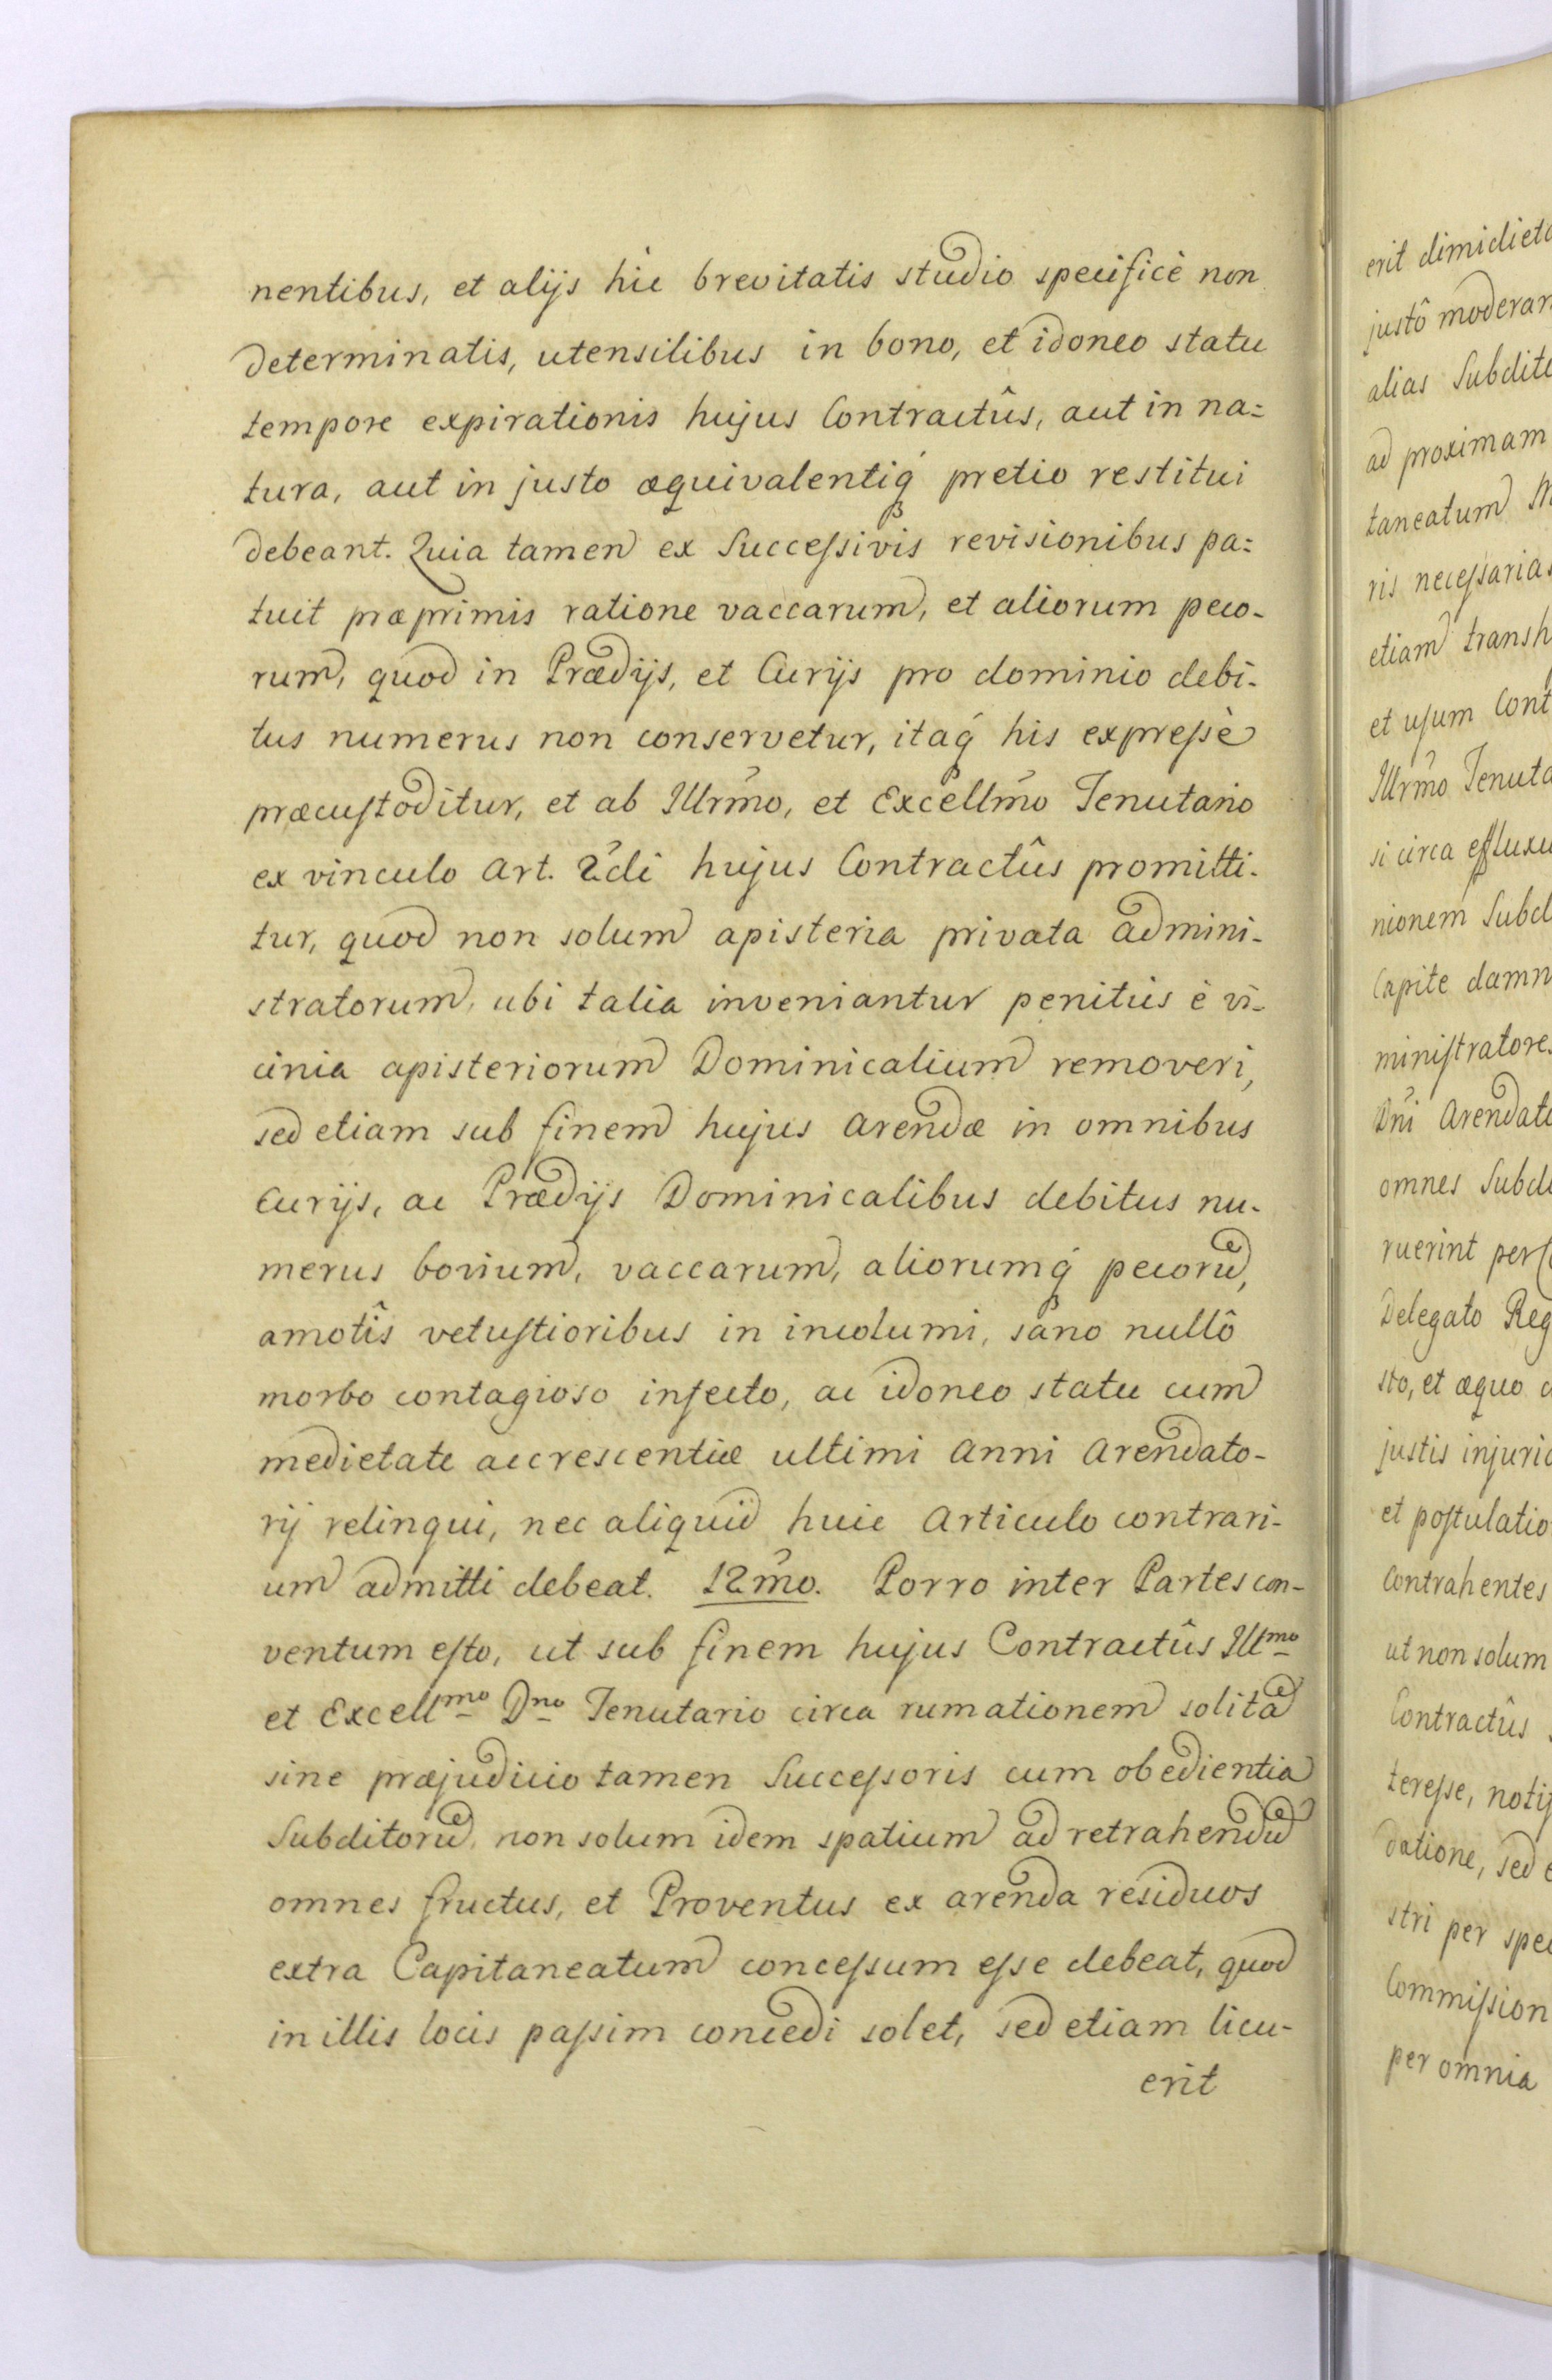 nentibus, et alijs hic brevitatis studio specificè non
determinatis, utensilibus in bono, et idoneo statu
tempore expirationis hujus Contractûs, aut in na=
tura, aut in justo æquivalentiq́ pretio restitui
debeant. Quia tamen ex Succeſsivis revisionibus pa=
tuit præprimis ratione vaccarum, et aliorum peco-
rum, quod in Prædijs, et Curijs pro dominio debi-
tus numerus non conservetur, itaq́ his expreſsè
præcuſtoditur, et ab Illrm̃o, et Excellm̃o Tenutario
ex vinculo Art. 2di hujus Contractûs promitti-
tur, quod non solum apisteria privata admini-
stratorum, ubi talia inveniantur penitùs è vi-
cinia apisteriorum Dominicalium removeri,
sed etiam sub finem hujus Arendæ in omnibus
Curijs, ac Prædijs Dominicalibus debitus nu-
merus bovium, vaccarum, aliorumq́ pecorū,
amotîs vetuſtioribus in incolumi, sano nullô
morbo contagioso infecto, ac idoneo statu cum
medietate accrescentiæ ultimi Anni Arendato-
rij relinqui, nec aliquid huic Articulo contrari-
um admitti debeat. 12m̃o. Porro inter Partes con-
ventum eſto, ut sub finem hujus Contractûs Illmo
et Excellmo Dno Tenutario circa rumationem solitā
sine præjudicio tamen Succeſsoris cum obedientia
Subditorū, non solum idem spatium ad retrahendū
omnes fructus, et Proventus ex arenda residuos
extra Capitaneatum conceſsum eſse debeat, quod
in illis locis paſsim concedi solet, sed etiam licu-
erit
erit dimidieta
justô moderan
alias Subdit
ad proximam
taneatum
ris neceſsarias
etiam transh
et uſum Cont
Illrm̃o Tenuta
si circa effluxu
nionem Subd
Capite damn
miniſtratores
Dñi Arendato
omnes Subd
ruerint per
Delegato Reg
sto, et æquo
justis injuri
et poſtulatio
Contrahentes
ut non solum
Contractûs
tereſse, noti
datione, sed
stri per spec
Commiſsion
per omnia